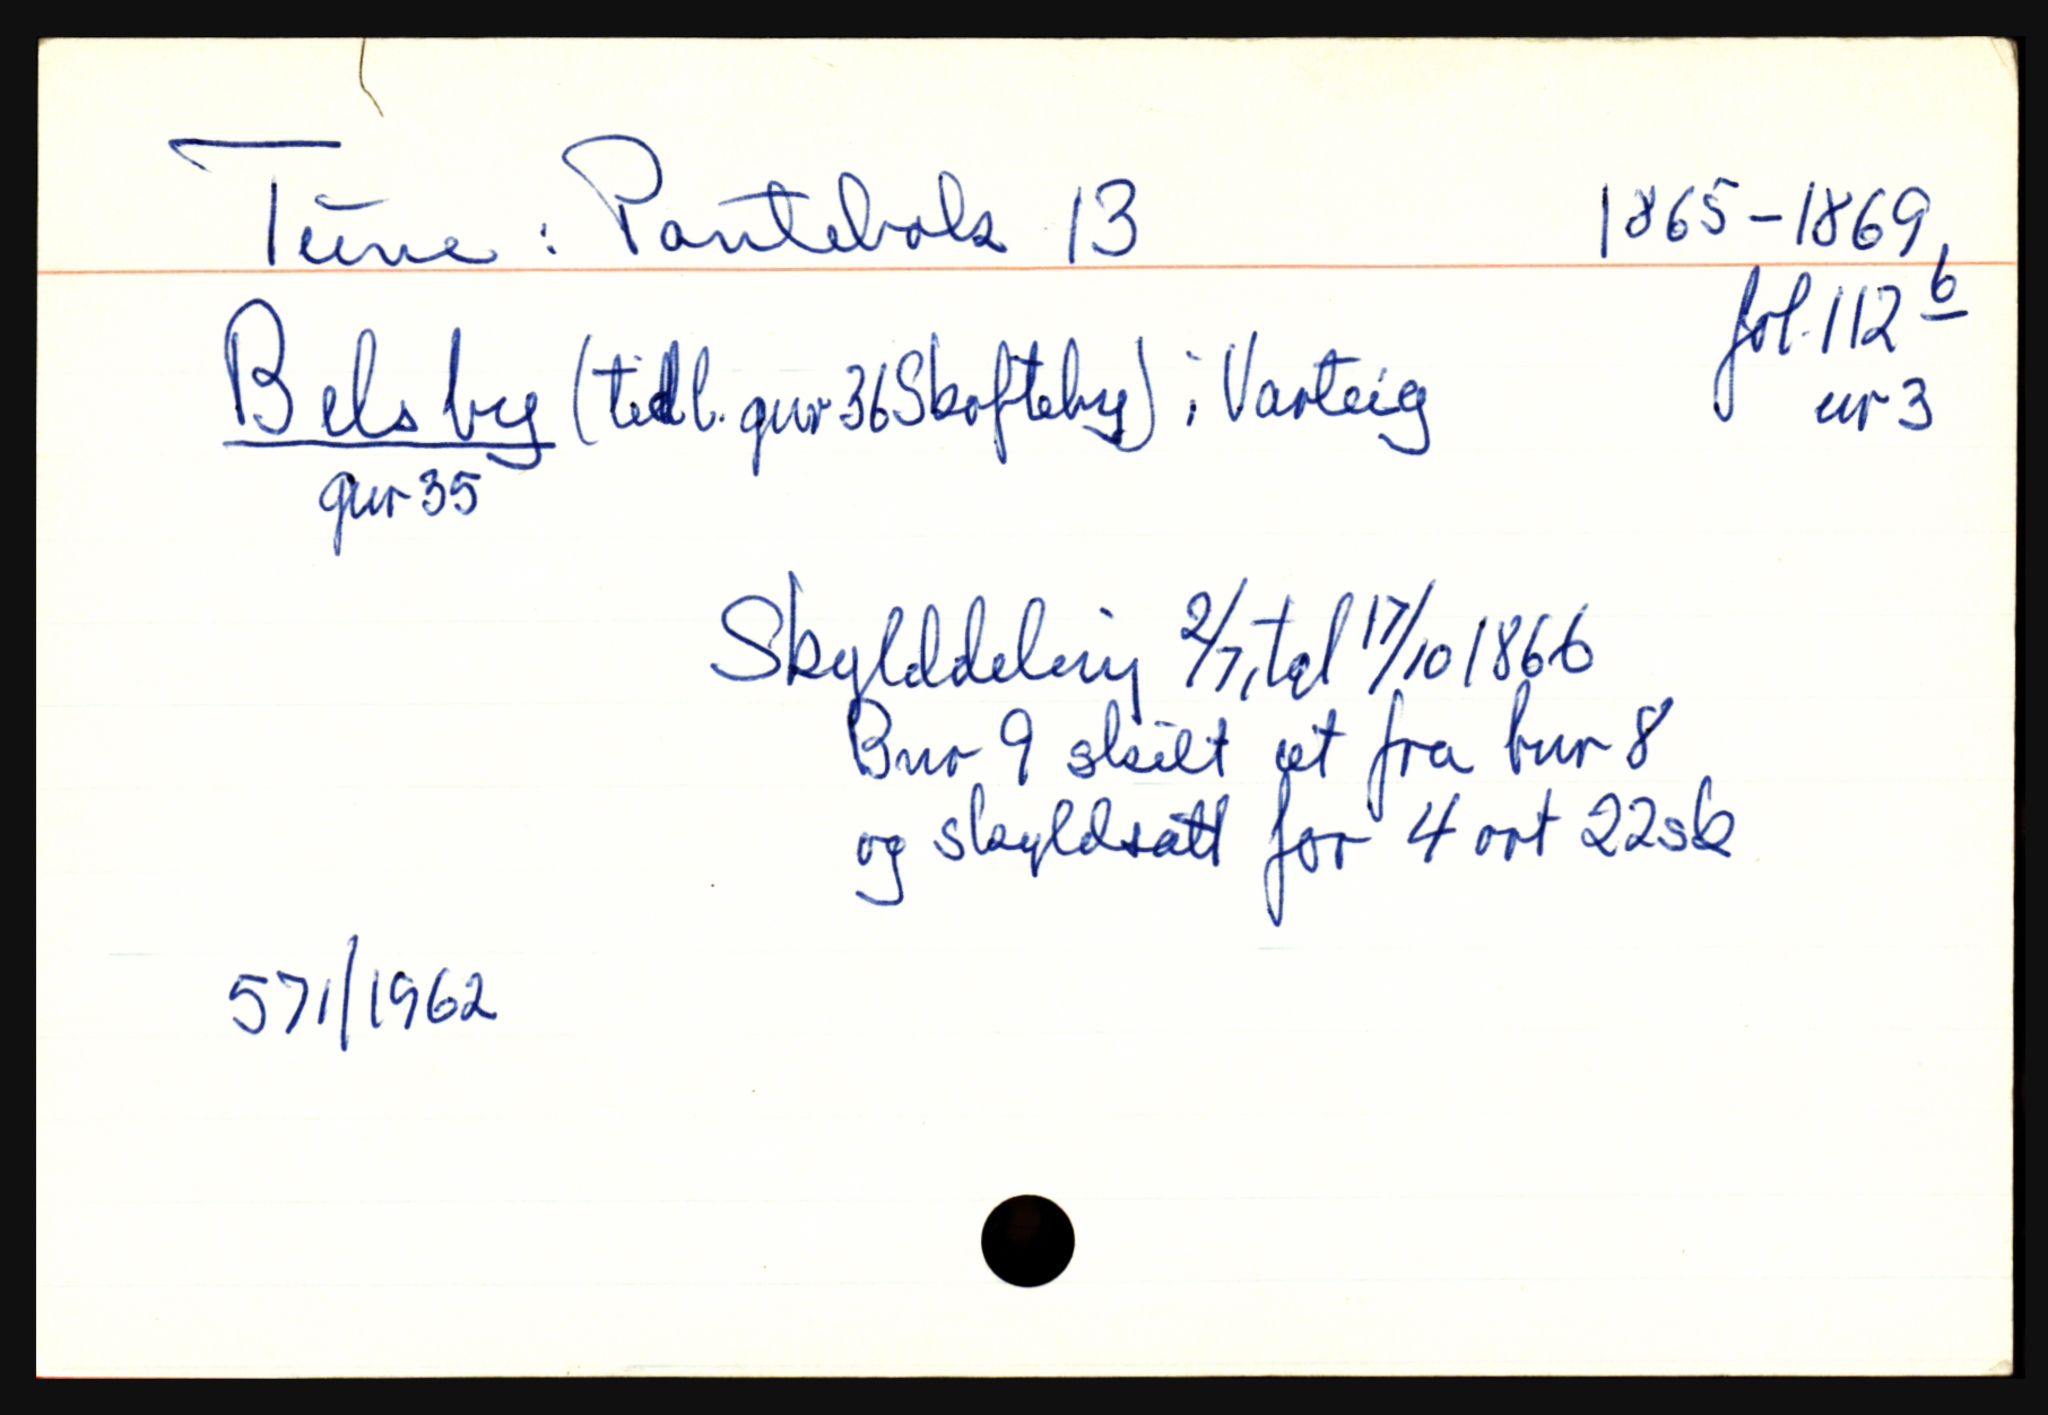 Tune: Pantebok 13 1865-1869,
fol. 112 b
Belsby (tidl. gnr 36 Skofteby) i Varteig
nr 3
gnr 35
Skylddeling 2/7, tgl 17/10 1866
Bnr 9 skilt ut fra bnr 8
og skyldsatt for 4 ort 22 sk
571/1962